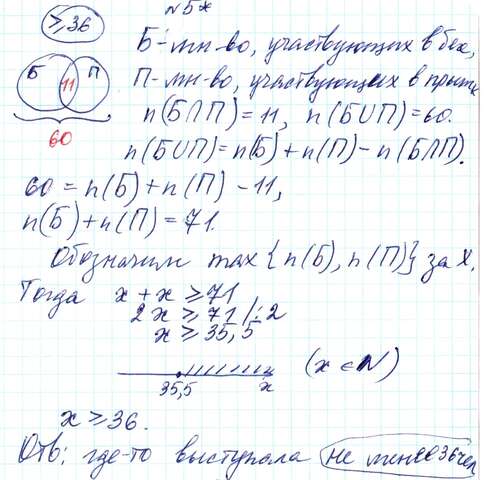 ≥36
№5*
Б-мн-во, участвующих в беге,
П-мн-во, участвующих в прыж
Б 11 П
n(Б∩П)=11, n(БUП)=60.
60
n(БUП)=n(Б)+n(П)-n(Б∩П).
60=n(Б)+n(П)-11,
n(Б)+n(П)=71.
Обозначим max{n(Б),n(П)} за x.
Тогда x+x≥71
2x≥71 /:2
x≥35,5
(x∈N)
35,5 x
x≥36.
Отв: где-то выступала не менее 36 чел